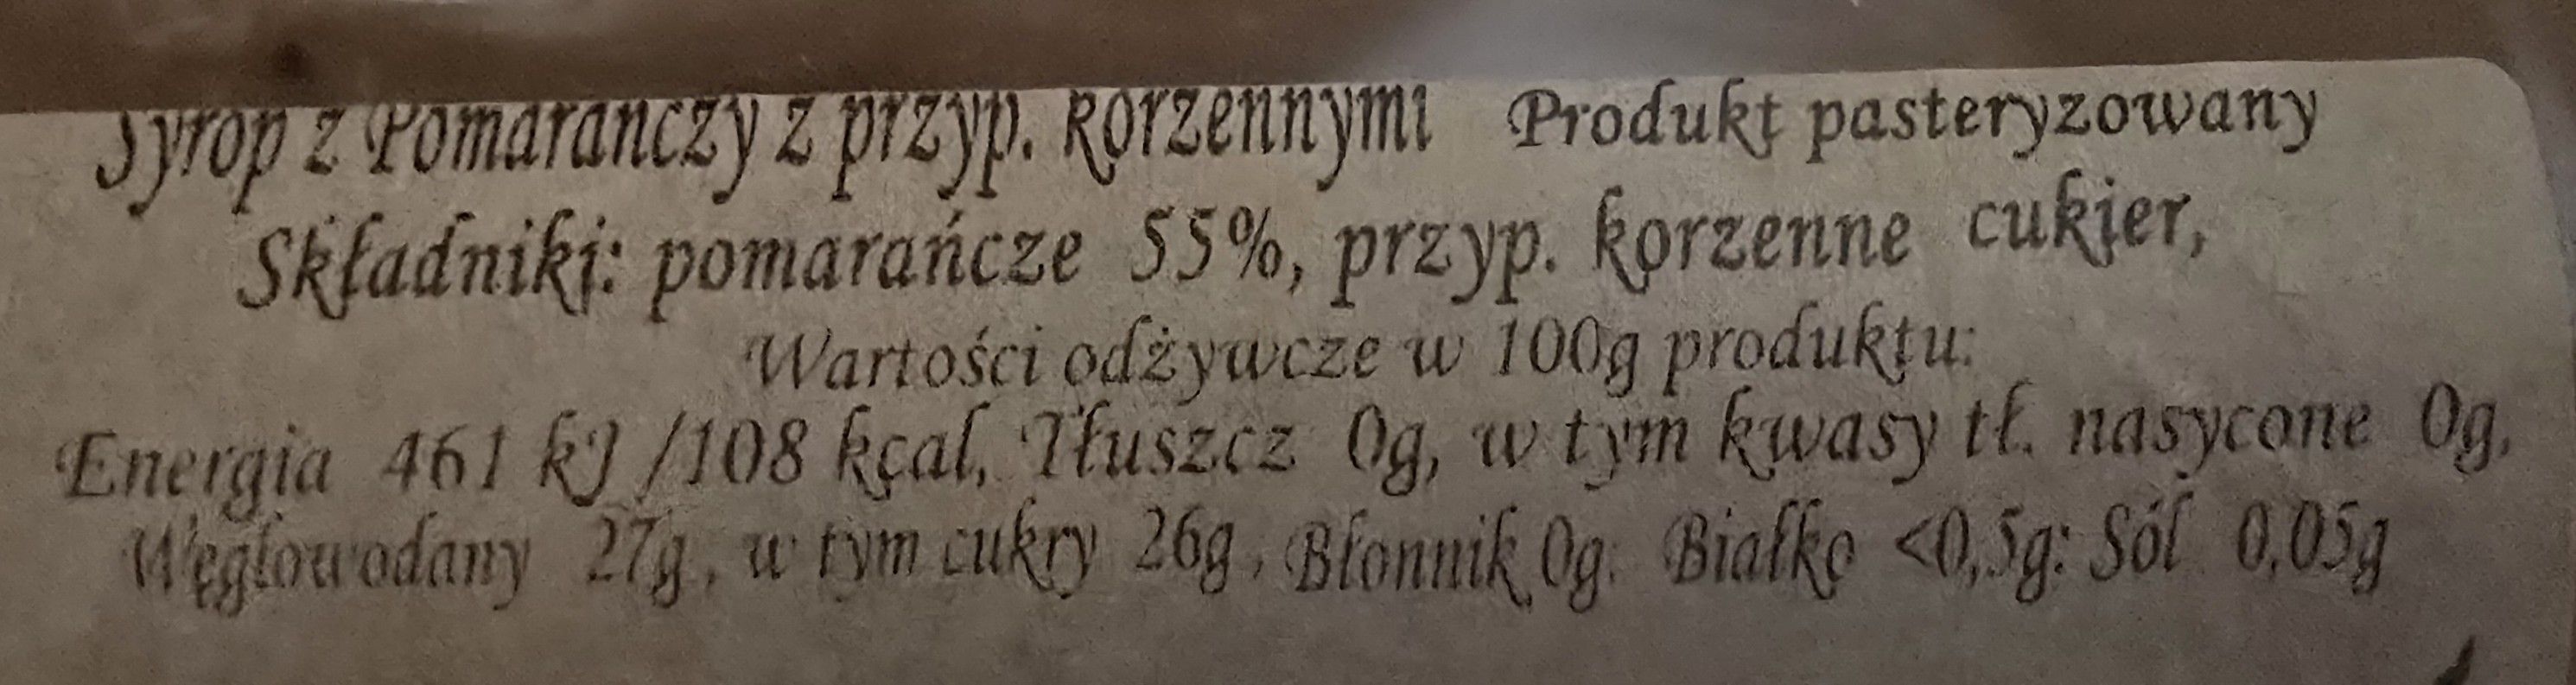 Syrop z Pomarańczy z przyp. korzennymi Produkt pasteryzowany
Składniki: pomarańcze 55%, przyp. korzenne cukier,
Wartości odżywcze w 100g produktu:
Energia 461 kJ /108 kcal, Tłuszcz 0g, w tym kwasy tł. nasycone 0g,
Węglowodany 27g, w tym cukry 26g, Błonnik 0g. Białko <0,5g: Sól 0,05g